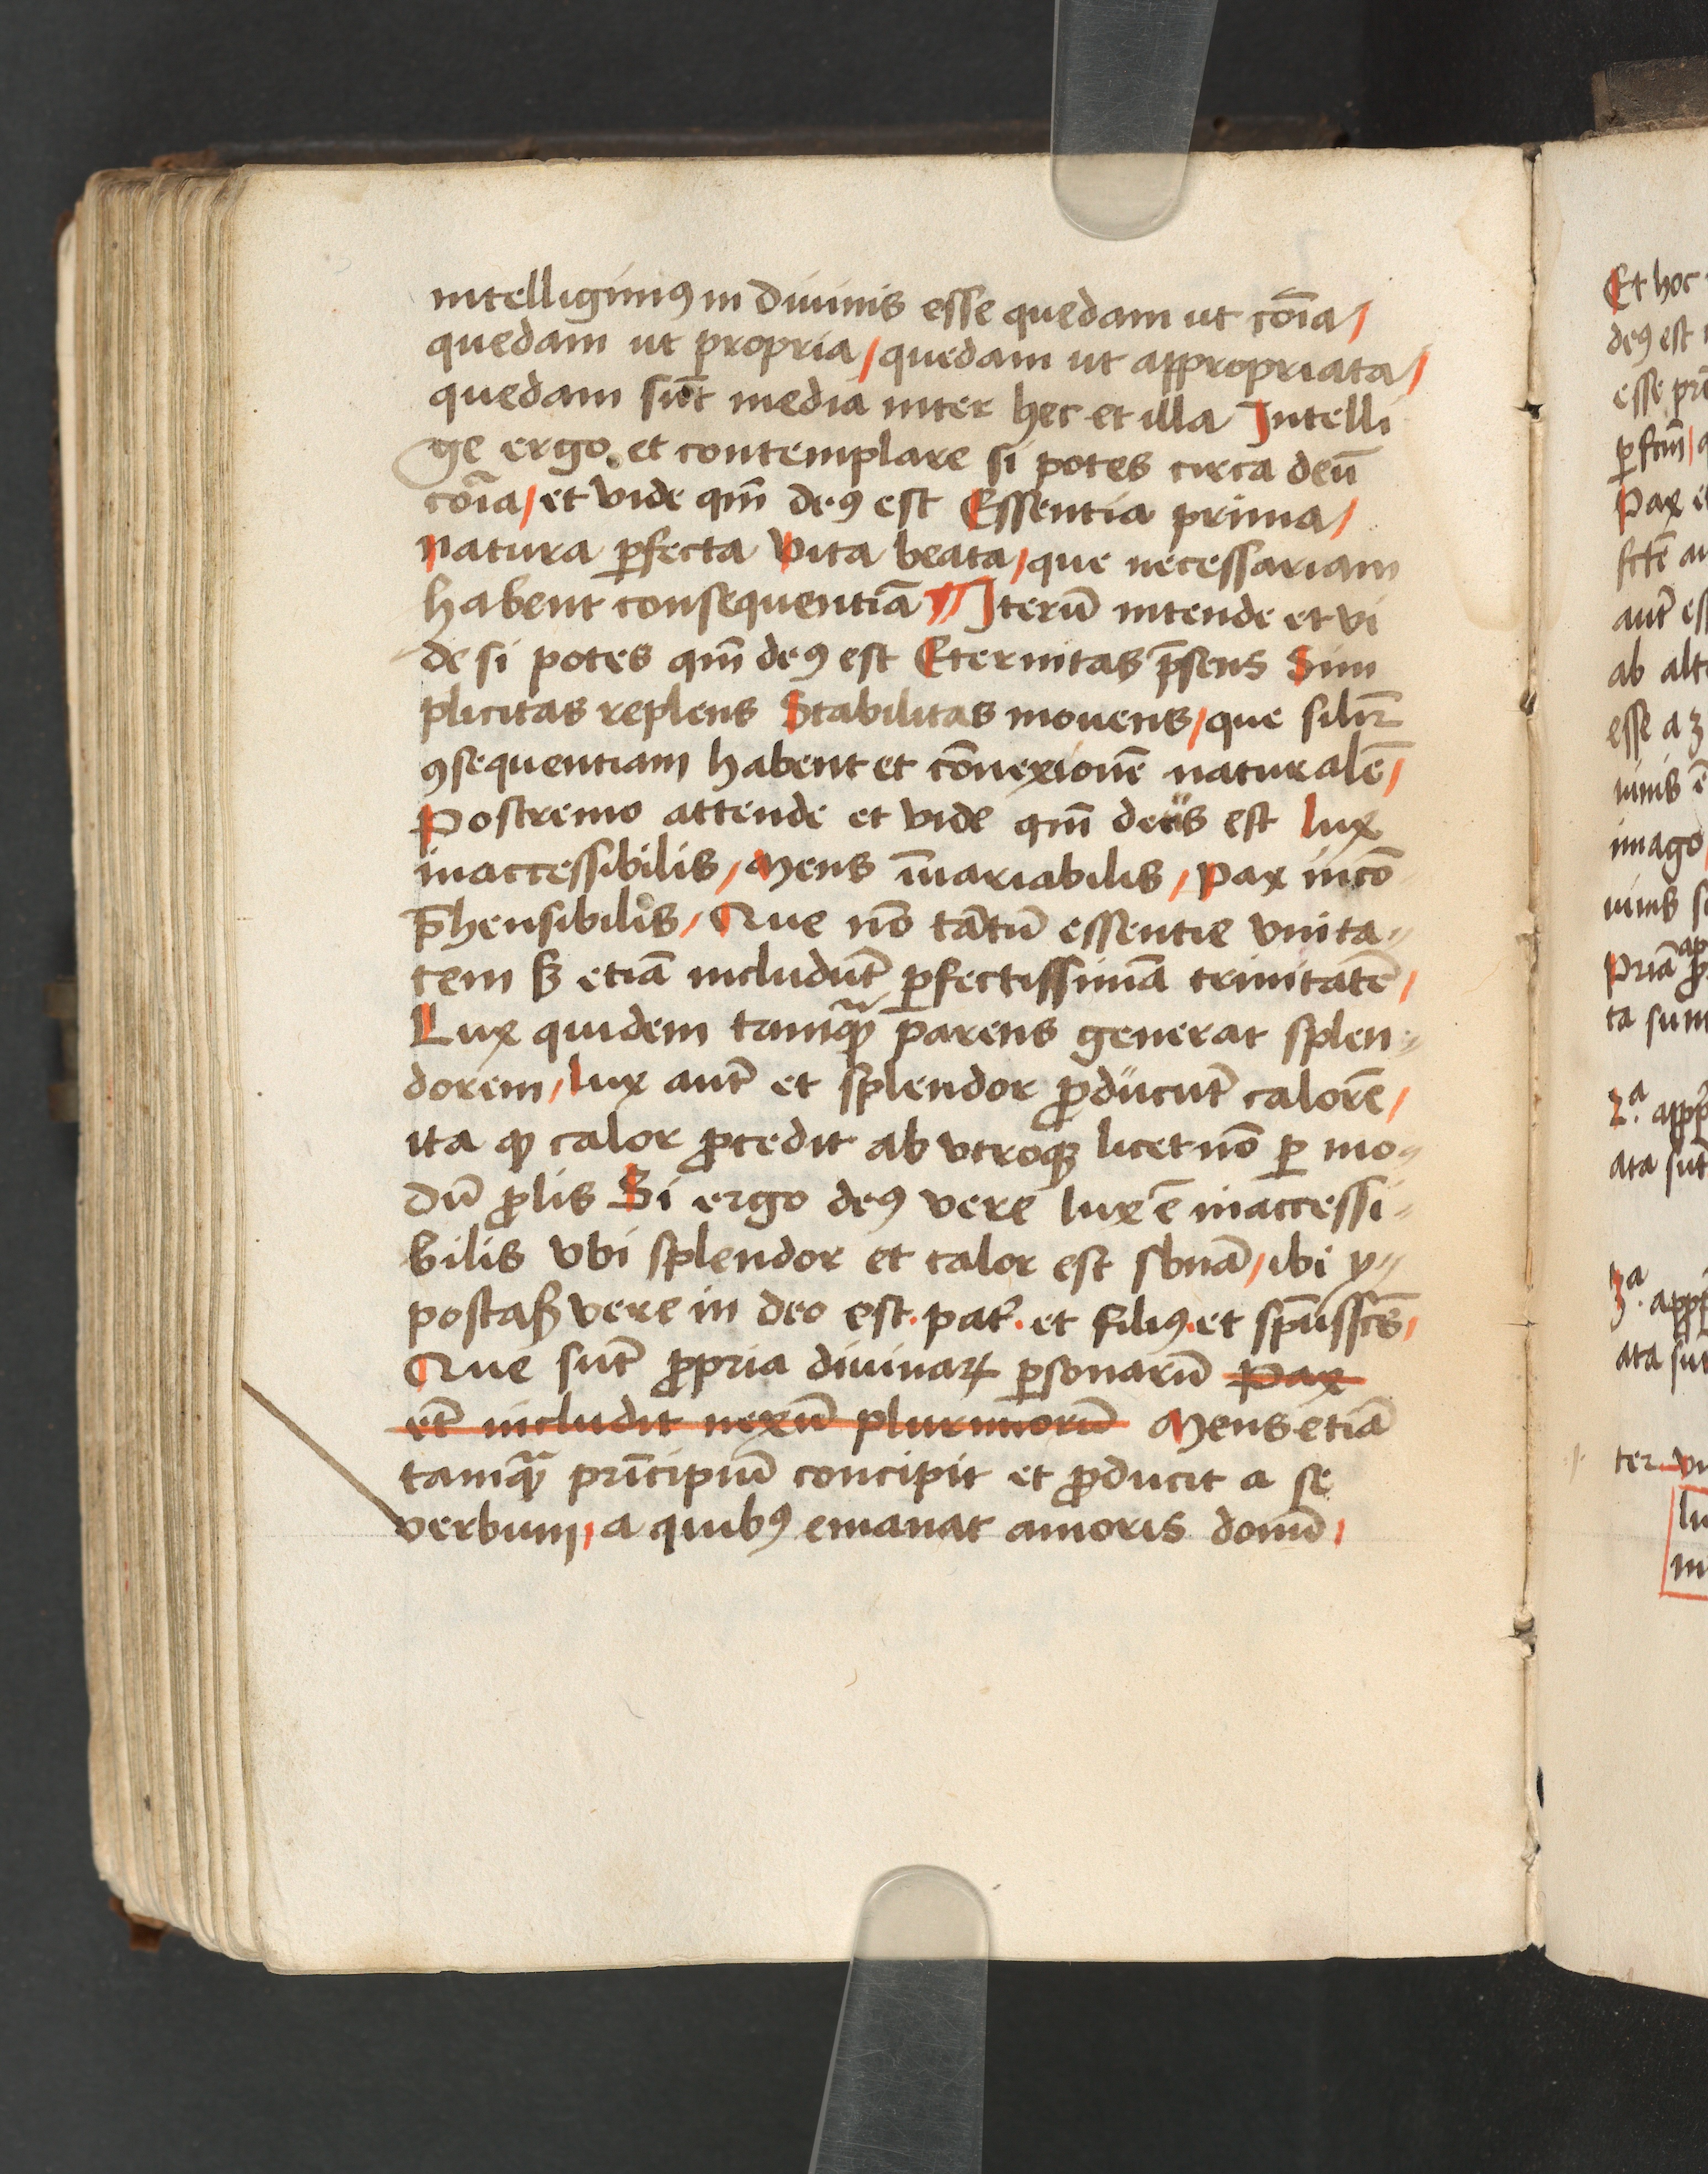 intelligimꝰ in Diuinis esse quedam ut cōia/
quedam ut propria/ quedam ut appropriata/
quedam sūt media inter hec et illa Intelli
ge ergo et contemplare si potes circa deū
cōia/ et vide qm̄ deꝰ est Essentia prima/
natura ꝑfecta Vita beata/ que necessariam
habent consequentiā ¶ Iterū intende et vi
de si potes qm̄ deꝰ est Eternitas p̄sens Sim
plicitas replens Stabilitas mouens/ que silir̄
ꝯsequentiam habent et cōnexionē naturalē/
Postremo attende et vide qm̄ deus est lux
inaccessibilis/ Mens īuariabilis/ Pax incō
p̄hensibilis/ Que nō tātū essentie vnita-
tem sꝫ etiā includūt ꝑfectissimā trinitatē/
Lux quidem tamqͣꝫ parens generat splen-
dorem/ lux aut̄ et splendor ꝓducūt calorē/
ita ꝙ calor ꝓcedit ab vtroqꝫ licet nō ꝑ mo-
dū ꝓlis Si ergo deꝰ vere lux ē inaccessi-
bilis vbi splendor et calor est sbnā/ ibi y-
postaß vere in deo est. pat̄. et filiꝰ. et sp̄ussc̄s/
Que sūt ꝓpria diuinaꝝ ꝑsonarū Pax
et̄ includit nexū plurimorū Mens etiā
tamqͣꝫ prīcipiū concipit et ꝓducit a se
verbum/ a quibꝰ emanat amoris donū/
Et hoc
deꝰ est
esse
Pax
ab
esse a
imago
ta sunt
2.ª
ata sūt
3.ª
ter